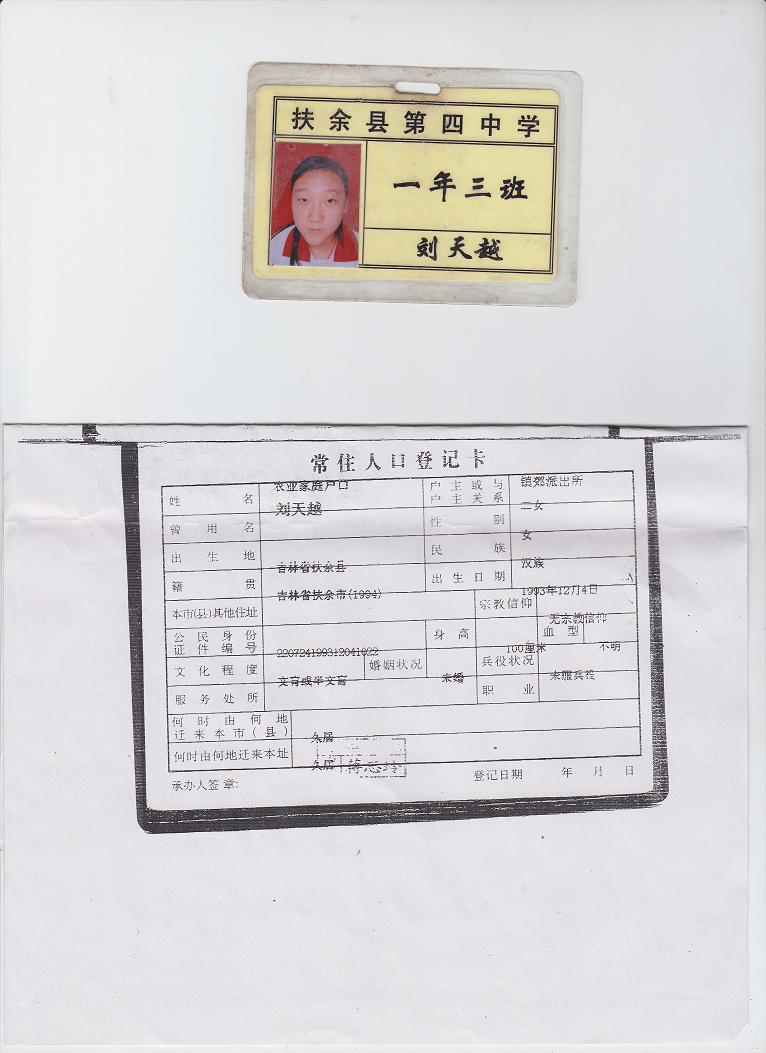 扶余县第四中学
一年三班
刘天越
常住人口登记卡
农业家庭户口 镇郊派出所
姓名 刘天越 户主或与户主关系 二女
曾用名 性别 女
出生地 吉林省扶余县 民族 汉族
籍贯 吉林省扶余市(1994) 出生日期 1993年12月4日
本市(县)其他住址 宗教信仰 无宗教信仰
公民身份证件编号 220724199312041622 身高 100厘米 血型 不明
文化程度 文盲或半文盲 婚姻状况 未婚 兵役状况 未服兵役
服务处所 职业
何时由何地迁来本市(县) 久居
何时由何地迁来本址 久居
承办人签章: 登记日期 年 月 日